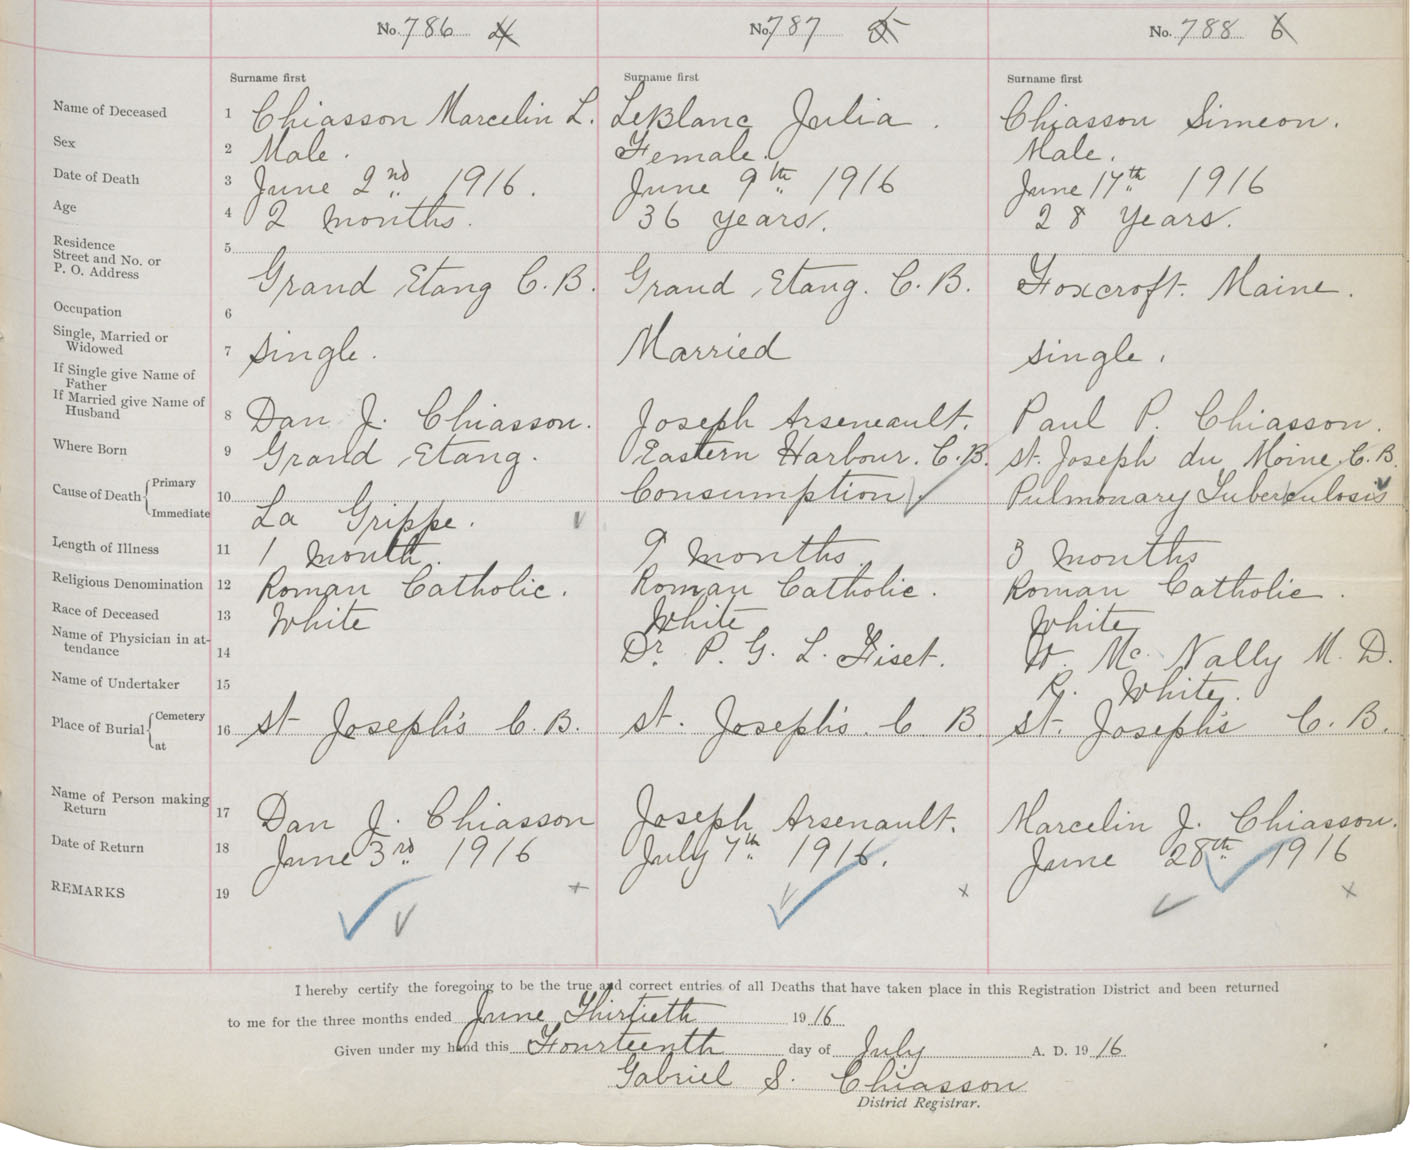 No. 786 4 No. 787 5 No. 788 6
Surname first Surname first Surname first
Name of Deceased 1 Chiasson Marcelin L. LeBlanc Julia . Chiasson Simeon.
Sex 2 Male. Female. Male.
Date of Death 3 June 2nd 1916. June 9th 1916 June 17th 1916
Age 4 2 months. 36 years. 28 Years.
Residence
Street and No. or
P. O. Address
5 Grand Etang C.B. Grand Etang. C.B. Foxcroft. Maine.
Occupation 6
Single, Married or
Widowed
7 single. Married single.
If Single give Name of
Father
If Married give Name of
Husband
8 Dan J. Chiasson. Joseph Arseneault. Paul P. Chiasson.
Where Born 9 Grand Etang. Eastern Harbour. C.B. St. Joseph du Moine. C.B.
Cause of Death { Primary
Immediate
10 La Grippe. Consumption. Pulmonary Tuberculosis
Length of Illness 11 1 month. 9 months 3 months
Religious Denomination 12 Roman Catholic. Roman Catholic. Roman Catholic.
Race of Deceased 13 White White White
Name of Physician in at-
tendance
14 Dr. P. G. L. Fiset. W. Mc Nally M. D.
Name of Undertaker 15 R. White.
Place of Burial { Cemetery
at
16 St Joseph's C.B. St. Joseph's. C B. St. Joseph's C. B.
Name of Person making
Return
17 Dan J. Chiasson Joseph Arsenault. Marcelin J. Chiasson.
Date of Return 18 June 3rd 1916 July 7th 1916. June 28th 1916
REMARKS 19
I hereby certify the foregoing to be the true and correct entries of all Deaths that have taken place in this Registration District and been returned
to me for the three months ended June Thirtieth 19 16
Given under my hand this Fourteenth day of July A. D. 19 16
Gabriel S. Chiasson
District Registrar.